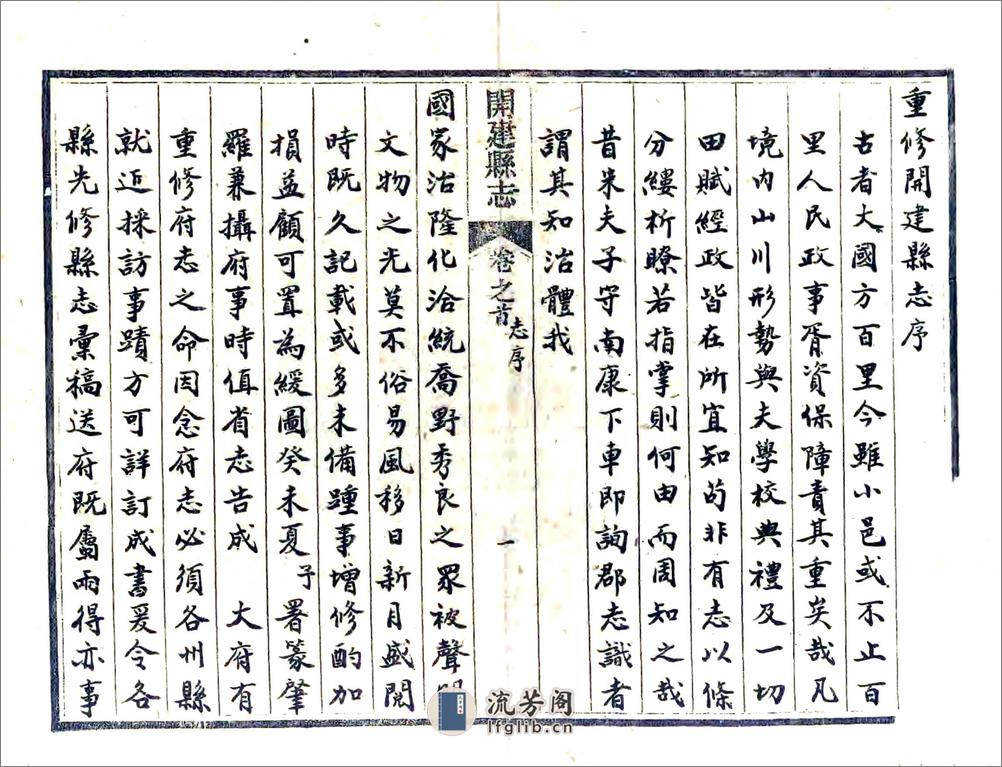 重修開建縣志序
古者大國方百里今雖小邑或不止百
里人民政事胥資保障責其重矣哉凡
境內山川形勢與夫學校典禮及一切
田賦經政皆在所宜知苟非有志以條
分縷析瞭若指掌則何由而周知之哉
昔朱夫子守南康下車即詢郡志識者
謂其知治體我
開建縣志 卷之首 志序 一
國家治隆化洽統喬野秀良之眾被聲明
文物之光莫不俗易風移日新月盛閱
時既久記載或多未備踵事增修酌加
損益顧可置為緩圖癸未夏予署篆肇
羅兼攝府事時值省志告成 大府有
重修府志之命因念府志必須各州縣
就近採訪事蹟方可詳訂成書爰令各
縣先修縣志彙稿送府既屬雨得亦事
流芳阁
lfglib.cn